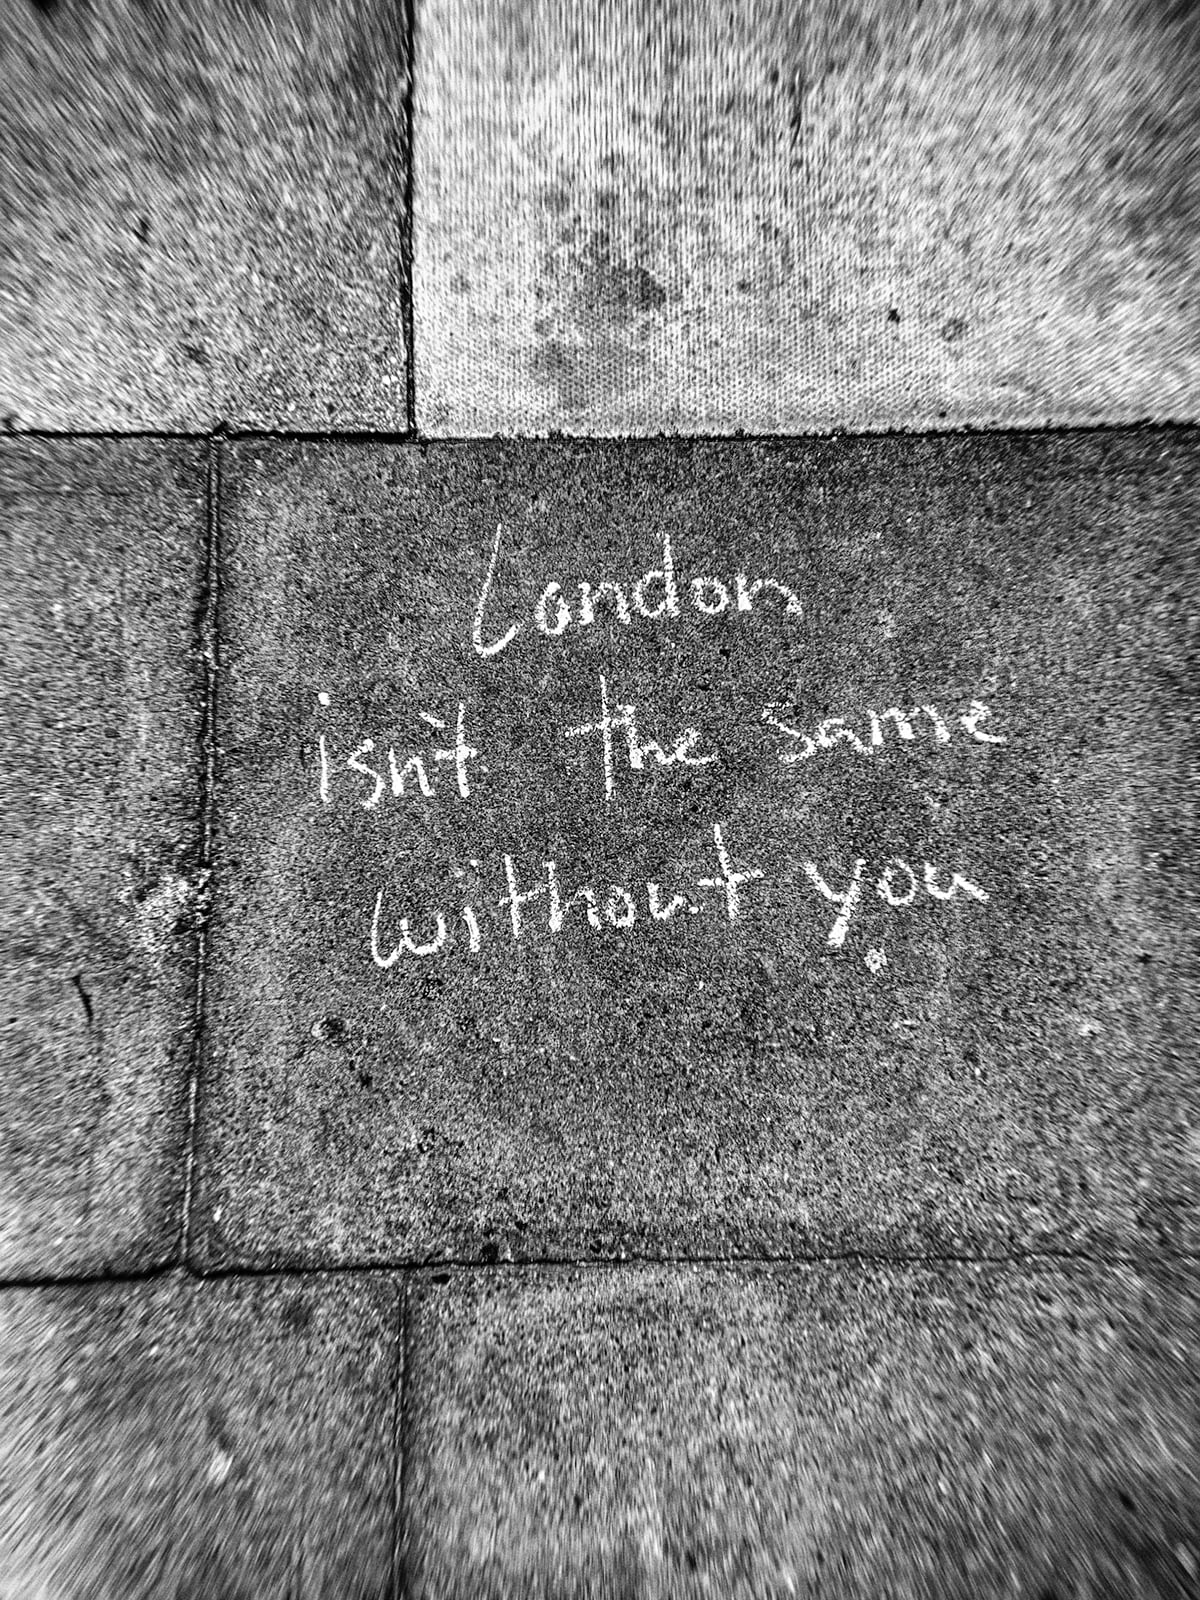 London
isn't the same
without you